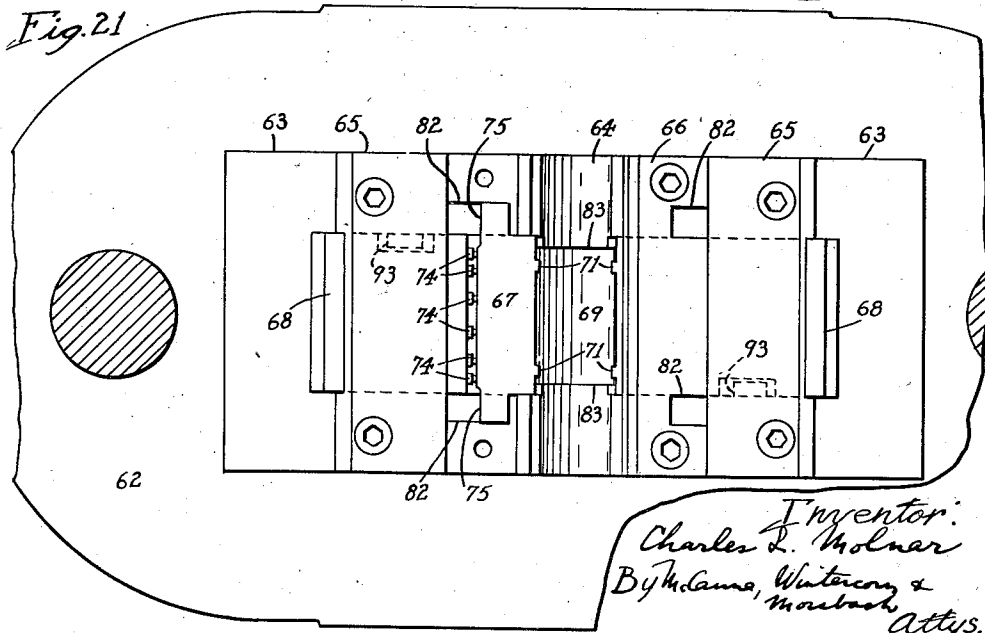 Fig. 21
63 65 82 75 64 66 82 65 63
83
93 74 71
74
68 67 69 68
74
74 71 82 93
83
62 82 75
Inventor:
Charles L. Molnar
By McCanna, Wintercorn &
Morsbach
Attys.